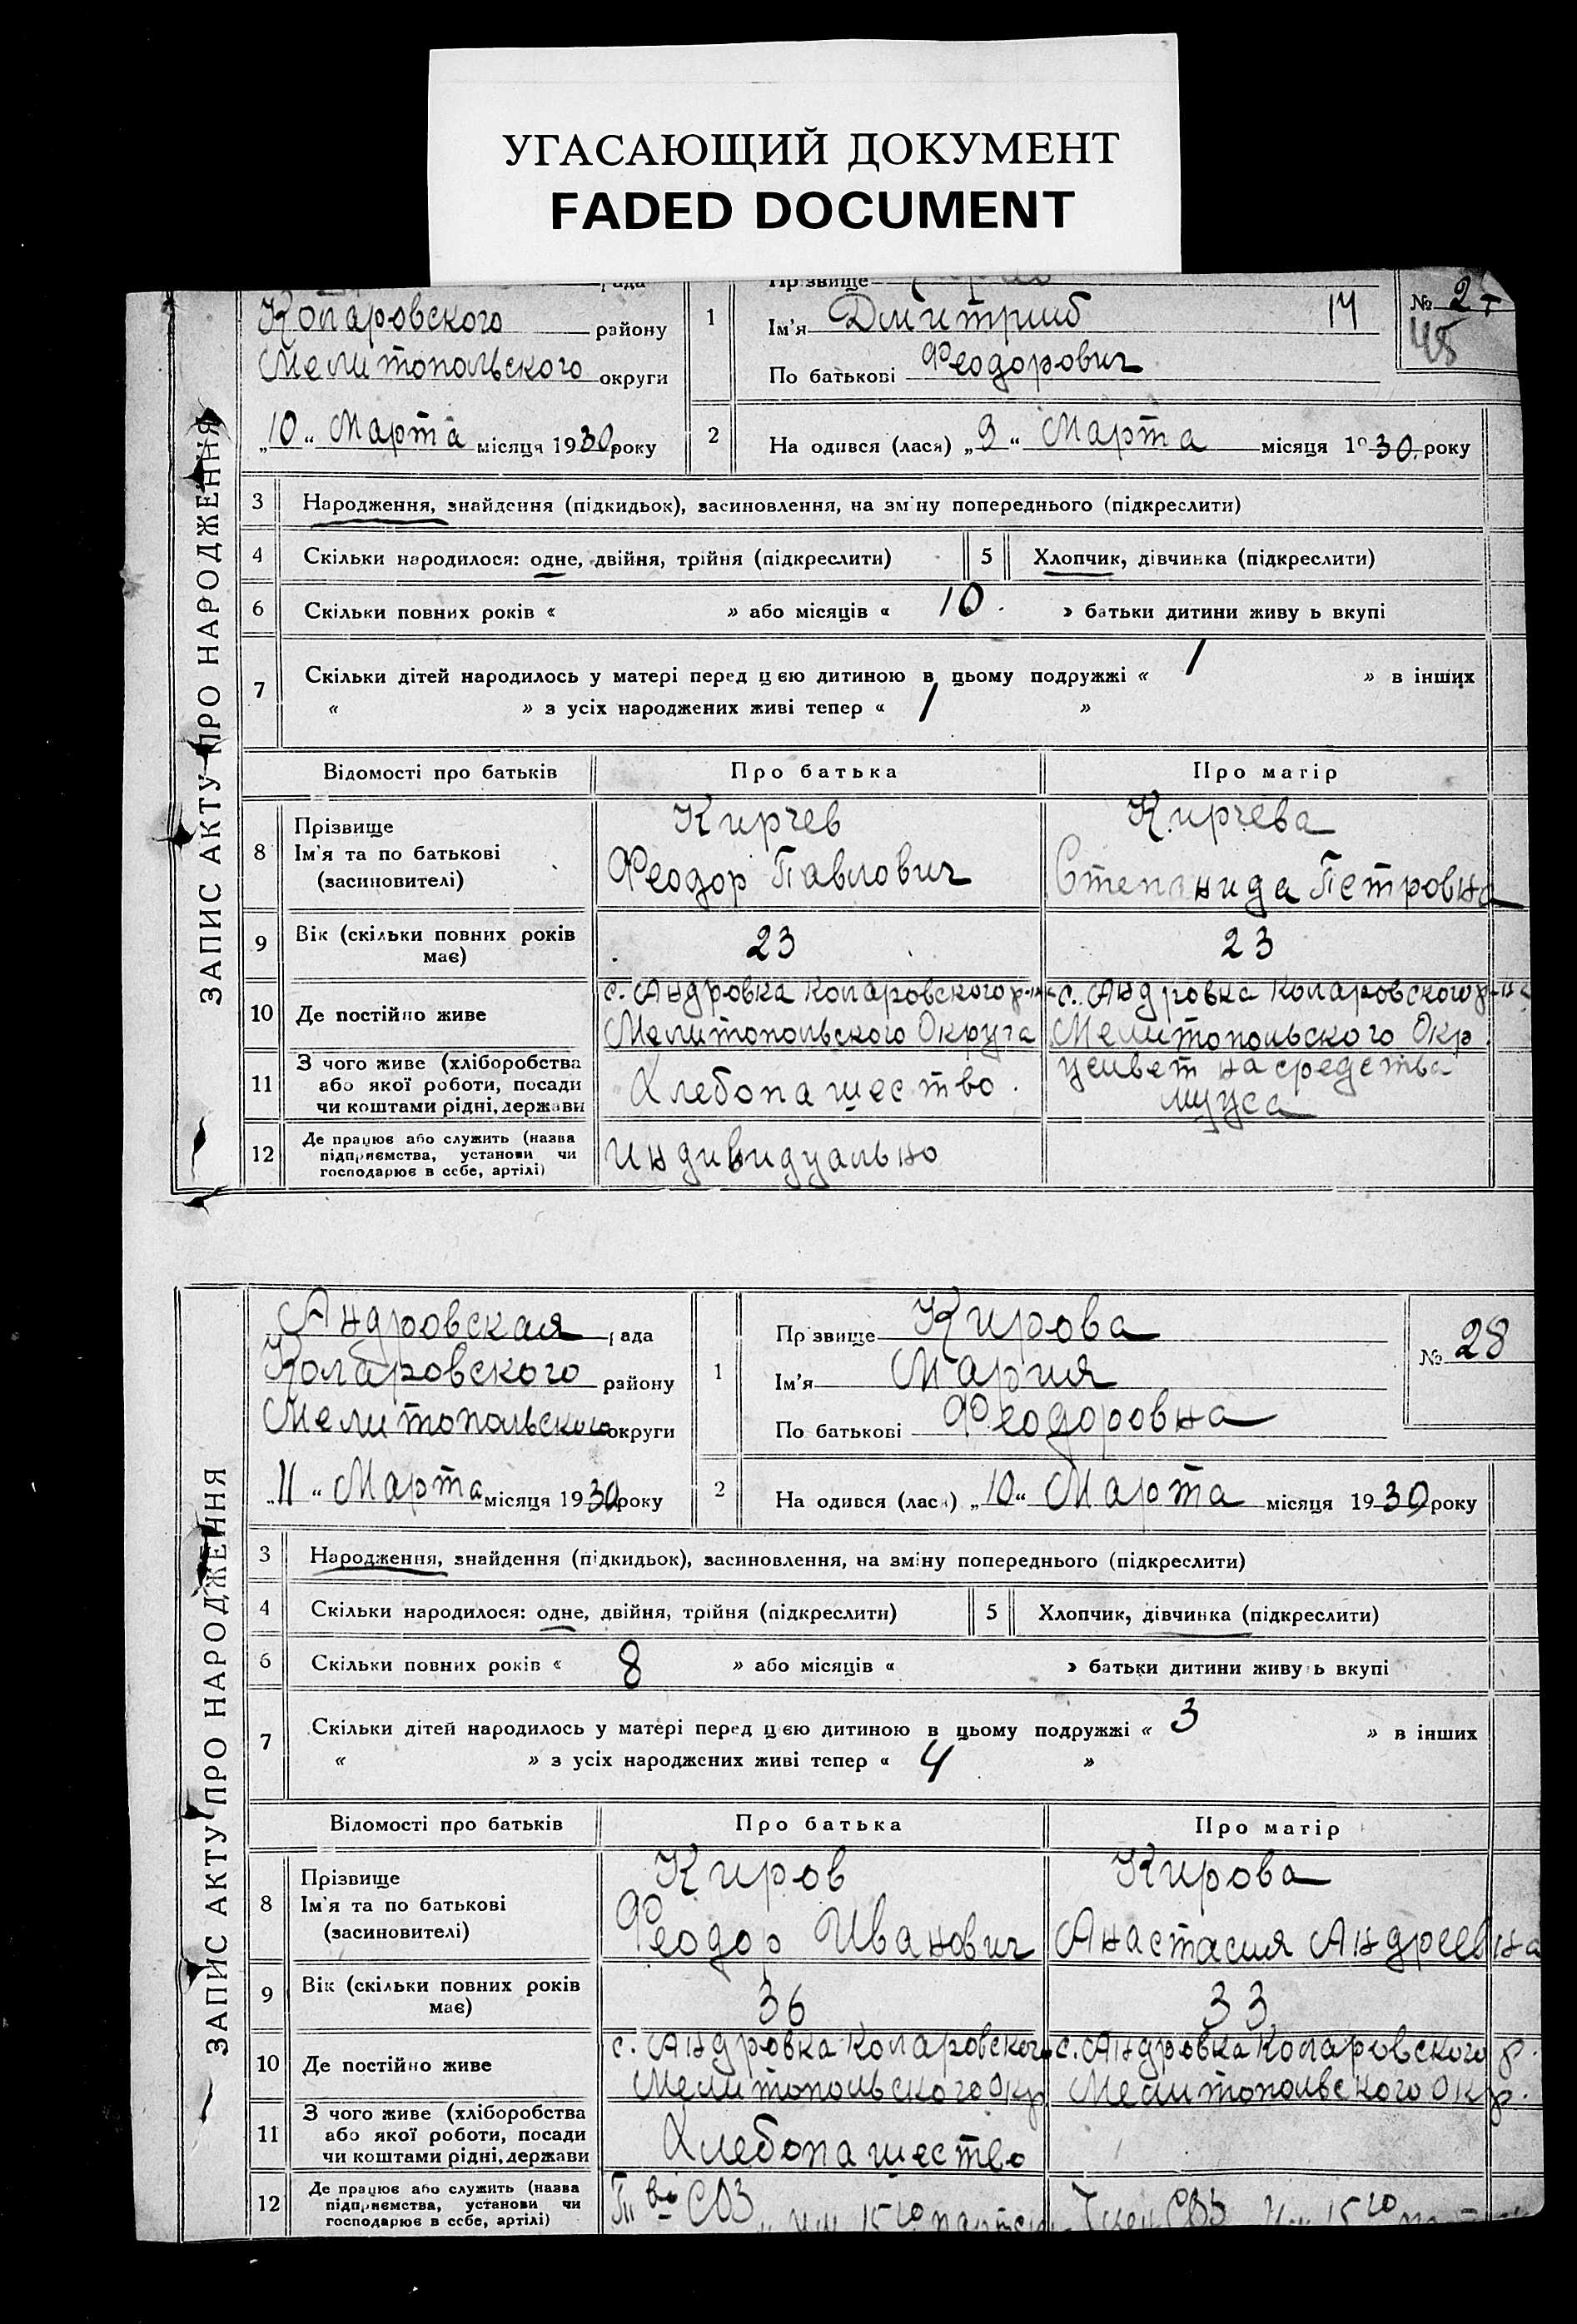 УГАСАЮЩИЙ ДОКУМЕНТ
FADED DOCUMENT
ЗАПИС АКТУ ПРО НАРОДЖЕННЯ
Коларовского району
Мелитопольского округи
„10“ Марта місяця 1930 року
1
Прізвище
Ім'я Дмитрий 14
По батькові Феодорович
№ 27
48
2 На одився (лася) „9“ Марта місяця 1930. року
3 Народження, знайдення (підкидьок), засиновлення, на зміну попереднього (підкреслити)
4 Скільки народилося: одне, двійня, трійня (підкреслити) 5 Хлопчик, дівчинка (підкреслити)
6 Скільки повних років « » або місяців « 10. » батьки дитини живу ь вкупі
7 Скільки дітей народилось у матері перед цією дитиною в цьому подружжі « 1 » в інших
« » з усіх народжених живі тепер « 1 »
Відомості про батьків Про батька Про матір
8 Прізвище Ім'я та по батькові (засиновителі)
Кирчев Кирчева
Феодор Павлович Степанида Петровна
9 Вік (скільки повних років має) 23 23
10 Де постійно живе
с. Андровка Коларовского р-на с. Андровка Коларовского р-на
Мелитопольского Округа Мелитопольского Окр.
11 З чого живе (хліборобства або якої роботи, посади чи коштами рідні, держави
Хлебопашество. живет на средства
мужа
12 Де працює або служить (назва підприємства, установи чи господарює в себе, артілі)
индивидуально
ЗАПИС АКТУ ПРО НАРОДЖЕННЯ
Андровская рада
Коларовского району
Мелитопольского округи
„11“ Марта місяця 1930 року
1
Пр звище Кирова
Ім'я Мария
По батькові Феодоровна
№ 28
2 На одився (лася) „10“ Марта місяця 1930 року
3 Народження, знайдення (підкидьок), засиновлення, на зміну попереднього (підкреслити)
4 Скільки народилося: одне, двійня, трійня (підкреслити) 5 Хлопчик, дівчинка (підкреслити)
6 Скільки повних років « 8 » або місяців « » батьки дитини живу ь вкупі
7 Скільки дітей народилось у матері перед цією дитиною в цьому подружжі « 3 » в інших
« » з усіх народжених живі тепер « 4 »
Відомості про батьків Про батька Про матір
8 Прізвище Ім'я та по батькові (засиновителі)
Киров Кирова
Феодор Иванович Анастасия Андреевна
9 Вік (скільки повних років має) 36 33
10 Де постійно живе
с. Андровка Коларовского с. Андровка Коларовского р.
Мелитопольского Окр. Мелитопольского Окр.
11 З чого живе (хліборобства або якої роботи, посади чи коштами рідні, держави
Хлебопашество
12 Де працює або служить (назва підприємства, установи чи господарює в себе, артілі)
СОЗ 15го СОЗ 15го